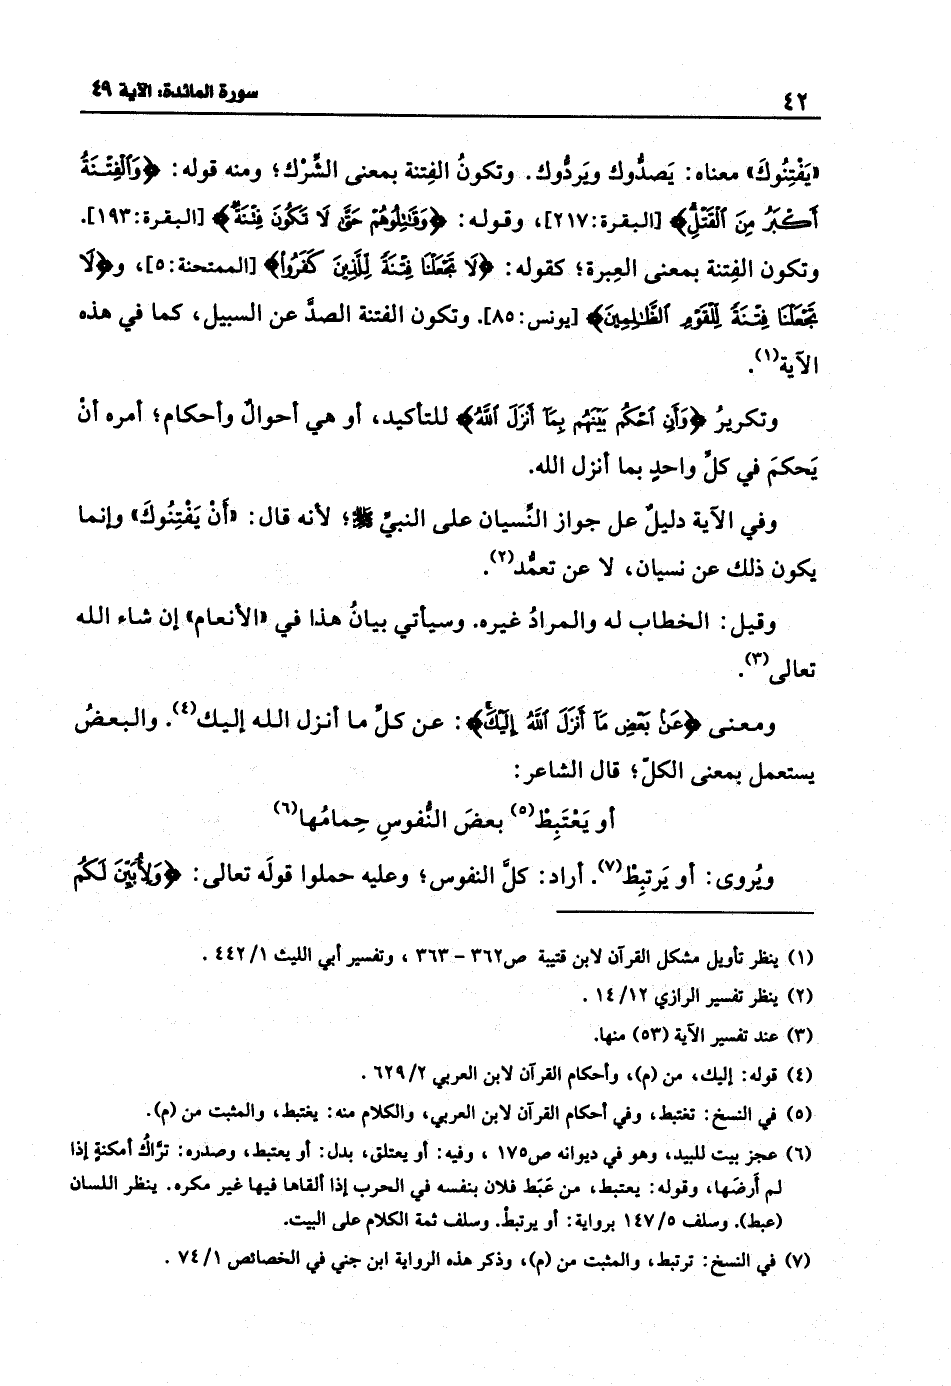 ٤٢
سورة المائدة: الآية ٤٩
«يَفْتِنُوكَ» معناه: يَصدُّوك ويَردُّوك. وتكونُ الفِتنة بمعنى الشِّرْك؛ ومنه قوله: ﴿وَٱلْفِتْنَةُ
أَكْبَرُ مِنَ ٱلْقَتْلِۗ﴾ [البقرة:٢١٧]، وقوله: ﴿وَقَٰتِلُوهُمْ حَتَّىٰ لَا تَكُونَ فِتْنَةٌ﴾ [البقرة:١٩٣].
وتكون الفِتنة بمعنى العِبرة؛ كقوله: ﴿لَا تَجْعَلْنَا فِتْنَةً لِّلَّذِينَ كَفَرُوا۟﴾ [الممتحنة:٥]، و﴿لَا
تَجْعَلْنَا فِتْنَةً لِّلْقَوْمِ ٱلظَّٰلِمِينَ﴾ [يونس:٨٥]. وتكون الفتنة الصدَّ عن السبيل، كما في هذه
الآية(١).
وتكريرُ ﴿وَأَنِ ٱحْكُم بَيْنَهُم بِمَآ أَنزَلَ ٱللَّهُ﴾ للتأكيد، أو هي أحوالٌ وأحكام؛ أمره أنْ
يَحكمَ في كلِّ واحدٍ بما أنزل الله.
وفي الآية دليلٌ عل جواز النِّسيان على النبيِّ ﷺ؛ لأنه قال: «أَنْ يَفْتِنُوكَ» وإنما
يكون ذلك عن نسيان، لا عن تعمُّد(٢).
وقيل: الخطاب له والمرادُ غيره. وسيأتي بيانُ هذا في «الأنعام» إن شاء الله
تعالى(٣).
ومعنى ﴿عَنۢ بَعْضِ مَآ أَنزَلَ ٱللَّهُ إِلَيْكَۖ﴾: عن كلِّ ما أنزل الله إليك(٤). والبعضُ
يستعمل بمعنى الكلّ؛ قال الشاعر:
أو يَعْتَبِطْ(٥) بعضَ النُّفوسِ حِمامُها(٦)
ويُروى: أو يَرتبِطْ(٧). أراد: كلَّ النفوس؛ وعليه حملوا قولَه تعالى: ﴿وَلِأُبَيِّنَ لَكُم
(١) ينظر تأويل مشكل القرآن لابن قتيبة ص٣٦٢ - ٣٦٣ ، وتفسير أبي الليث ٤٤٢/١ .
(٢) ينظر تفسير الرازي ١٤/١٢ .
(٣) عند تفسير الآية (٥٣) منها.
(٤) قوله: إليك، من (م)، وأحكام القرآن لابن العربي ٦٢٩/٢ .
(٥) في النسخ: تغتبط، وفي أحكام القرآن لابن العربي، والكلام منه: يغتبط، والمثبت من (م).
(٦) عجز بيت للبيد، وهو في ديوانه ص١٧٥ ، وفيه: أو يعتلق، بدل: أو يعتبط، وصدره: ترَّاكُ أمكنةٍ إذا
لم أَرضَها، وقوله: يعتبط، من عَبَط فلان بنفسه في الحرب إذا ألقاها فيها غير مكره. ينظر اللسان
(عبط). وسلف ١٤٧/٥ برواية: أو يرتبطْ. وسلف ثمة الكلام على البيت.
(٧) في النسخ: ترتبط، والمثبت من (م)، وذكر هذه الرواية ابن جني في الخصائص ٧٤/١ .